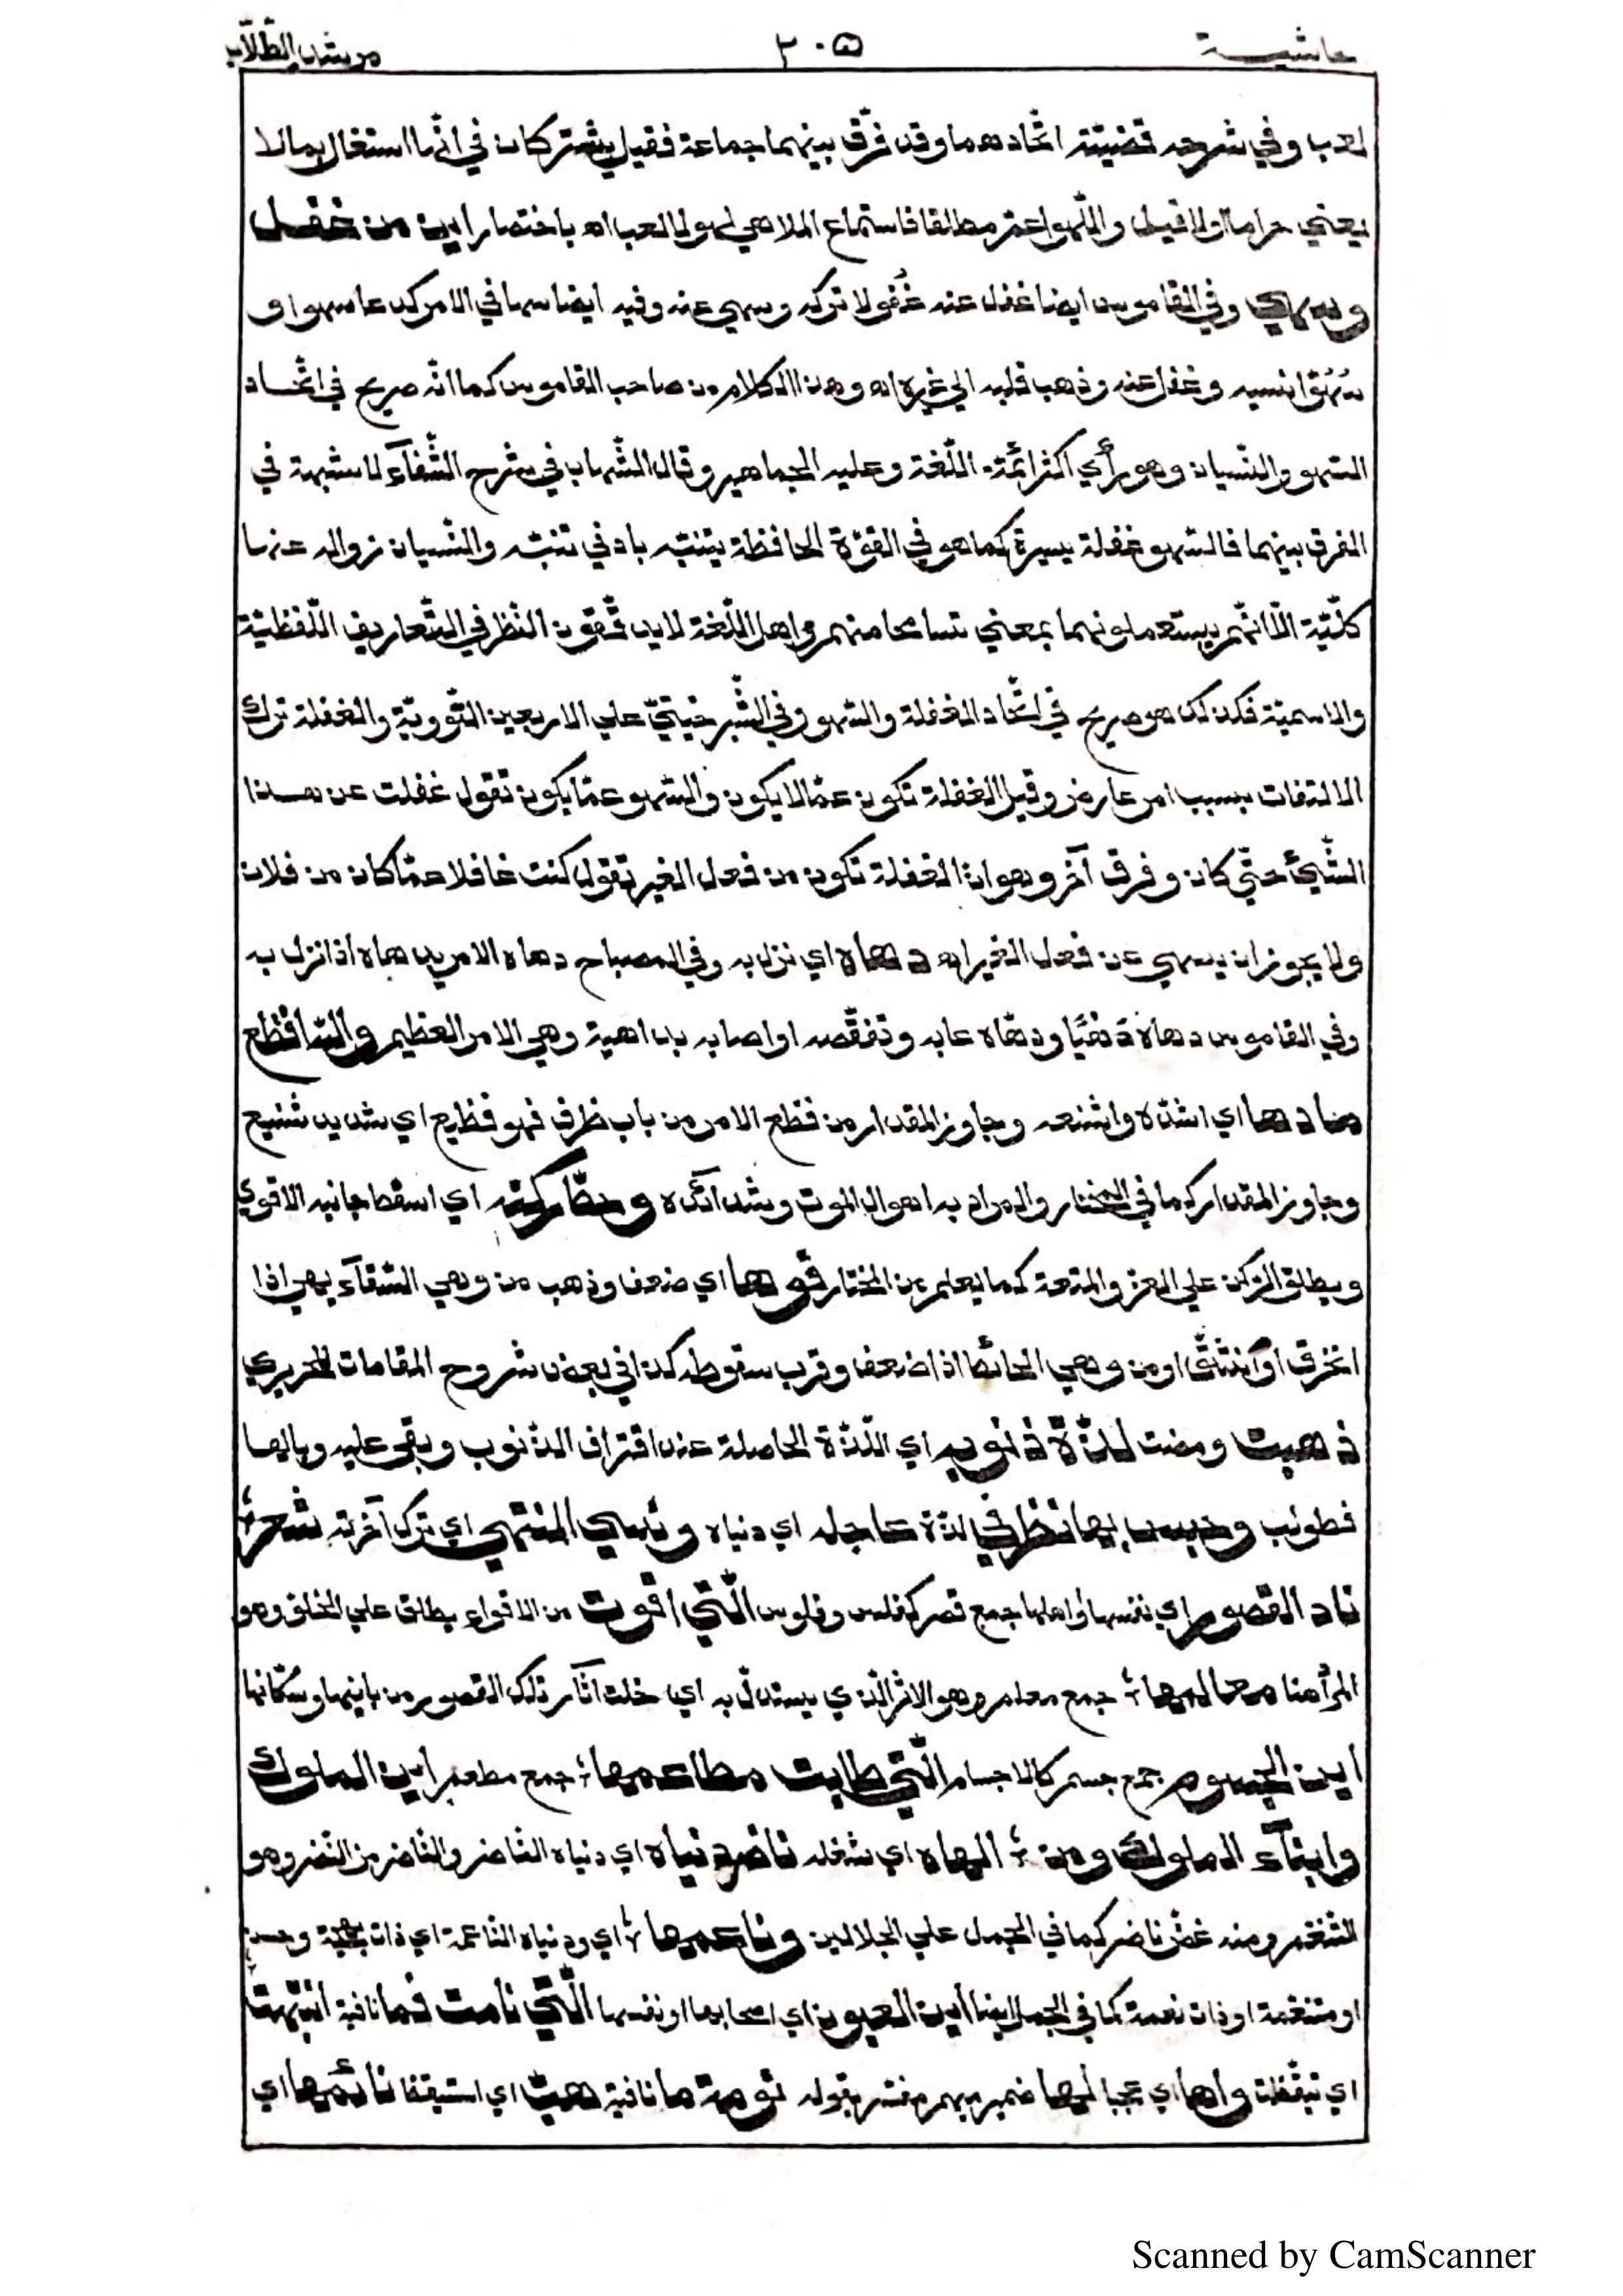 حاشية ٣٠٥ مرشد الطلاب
لعب وفي شرحه قضيته اتحادهما وقد فرق بينهما جماعة فقيل يشتركان في انها اشتغال بما لا
يعني حراما اولا قيل واللهو اعم مطلقا فاستماع الملاهي لهو لا لعب اه باختصار اين من غفل
وسهي وفي القاموس ايضا غفل عنه غفولا تركه وسهي عنه وفيه ايضا سها في الامر كدعا سهوا و
سهوا نسيه وغفل عنه وذهب قلبه الي غيره اه وهذا الكلام من صاحب القاموس كما انه صريح في اتحاد
السهو والنسيان وهو رأي اكثر ائمة اللغة وعليه الجماهير وقال الشهاب في شرح الشفآء لا شبهة في
الفرق بينهما فالسهو غفلة يسيرة كما هو في القوة الحافظة يتنبه بادني تنبه والنسيان زواله عنها
كلية الا انهم يستعملونهما بمعني تسامحا منهم واهل اللغة لا يدققون النظر في التعاريف اللفظية
والاسمية فكذلك هو صريح في اتحاد الغفلة والسهو وفي الشبرخيتي علي الاربعين النووية والغفلة ترك
الالتفات بسبب امر عارض وقيل الغفلة تكون عما لا يكون والسهو عما يكون تقول غفلت عن هذا
الشيئ حتي كان وفرق آخر وهو ان الغفلة تكون من فعل الغير تقول كنت غافلا عما كان من فلان
ولا يجوز ان يسهي عن فعل الغير اه دهاه اي نزل به وفي المصباح دهاه الامر يدهاه اذا نزل به
وفي القاموس دهاه دهيا ودهاه عابه وتنقصه او اصابه بداهية وهي الامر العظيم والله افظع
ما دها اي اشده واشنعه وجاوز المقدار من فظع الامر من باب ظرف فهو فظيع اي شديد شنيع
وجاوز المقدار كما في المختار والمراد به اهوال الموت وشدائده وحط ركنه اي اسقط جانبه الاقوي
ويطلق الركن علي العز والمنعة كما يعلم من المختار فوها اي ضعف وذهب من وهي السقآء يهي اذا
انخرق او انشق او من وهي الحائط اذا ضعف وقرب سقوطه كذا في بعض شروح المقامات للحريري
ذهبت ومضت لذة ذنوبه اي اللذة الحاصلة عند اقتراف الذنوب وبقي عليه وبالها
فطولب وحبس بها نظر في لذة عاجله اي دنياه ونسي المنتهي اي ترك آخرته شعر
ناد القصور اي نفسها او اهلها جمع قصر كفلس وفلوس الّتي اقوت من الاقواء يطلق علي الخلو وهو
المرأ هنا معالمها جمع معلم وهو الاثر الذي يستدل به اي خلت اثآر تلك القصور من بانيها وسكانها
اين الجسوم جمع جسم كالاجسام الّتي طابت مطاعمها جمع مطعم اين الملوك
وابنآء الملوك ومن الهاه اي شغله ناضر دنياه اي دنياه الناضر والناضر من النضر وهو
التنعم ومنه غض ناضر كما في الجمل علي الجلالين وناعمها اي ودنياه الناعمة اي ذات بهجة وحسن
او متنعمة او ذات نعمة كما في الجمل ايضا اين العيون اي اصحابها او نفسها الّتي نامت فما نافية انتبهت
اي تيقظت واها اي عجبا لها ضمير مبهم مفسر بقوله نومة ما نافية هب اي استيقظ نائمها اي
Scanned by CamScanner